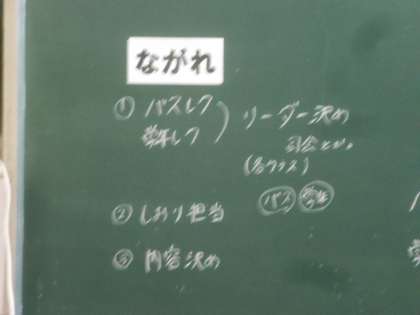 ながれ
① バスレク ) リーダー決め
学年レク 司会とか。
(各クラス)
バス 学年
② しおり担当
③ 内容決め